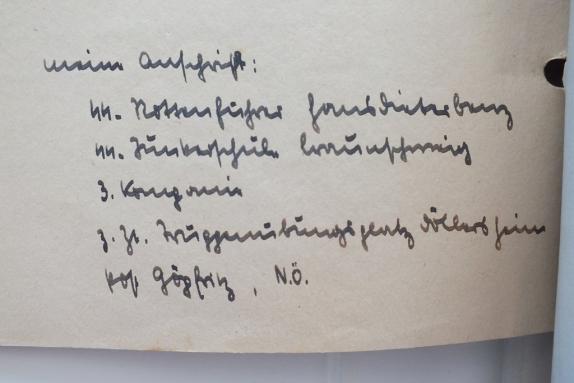 meine Anschrift:
SS. Rottenführer Hansdieter Benz
SS. Junkerschule Braunschweig
3. Kompanie
z. Zt. Truppenübungsplatz Döllersheim
Post Göpfritz, N.Ö.